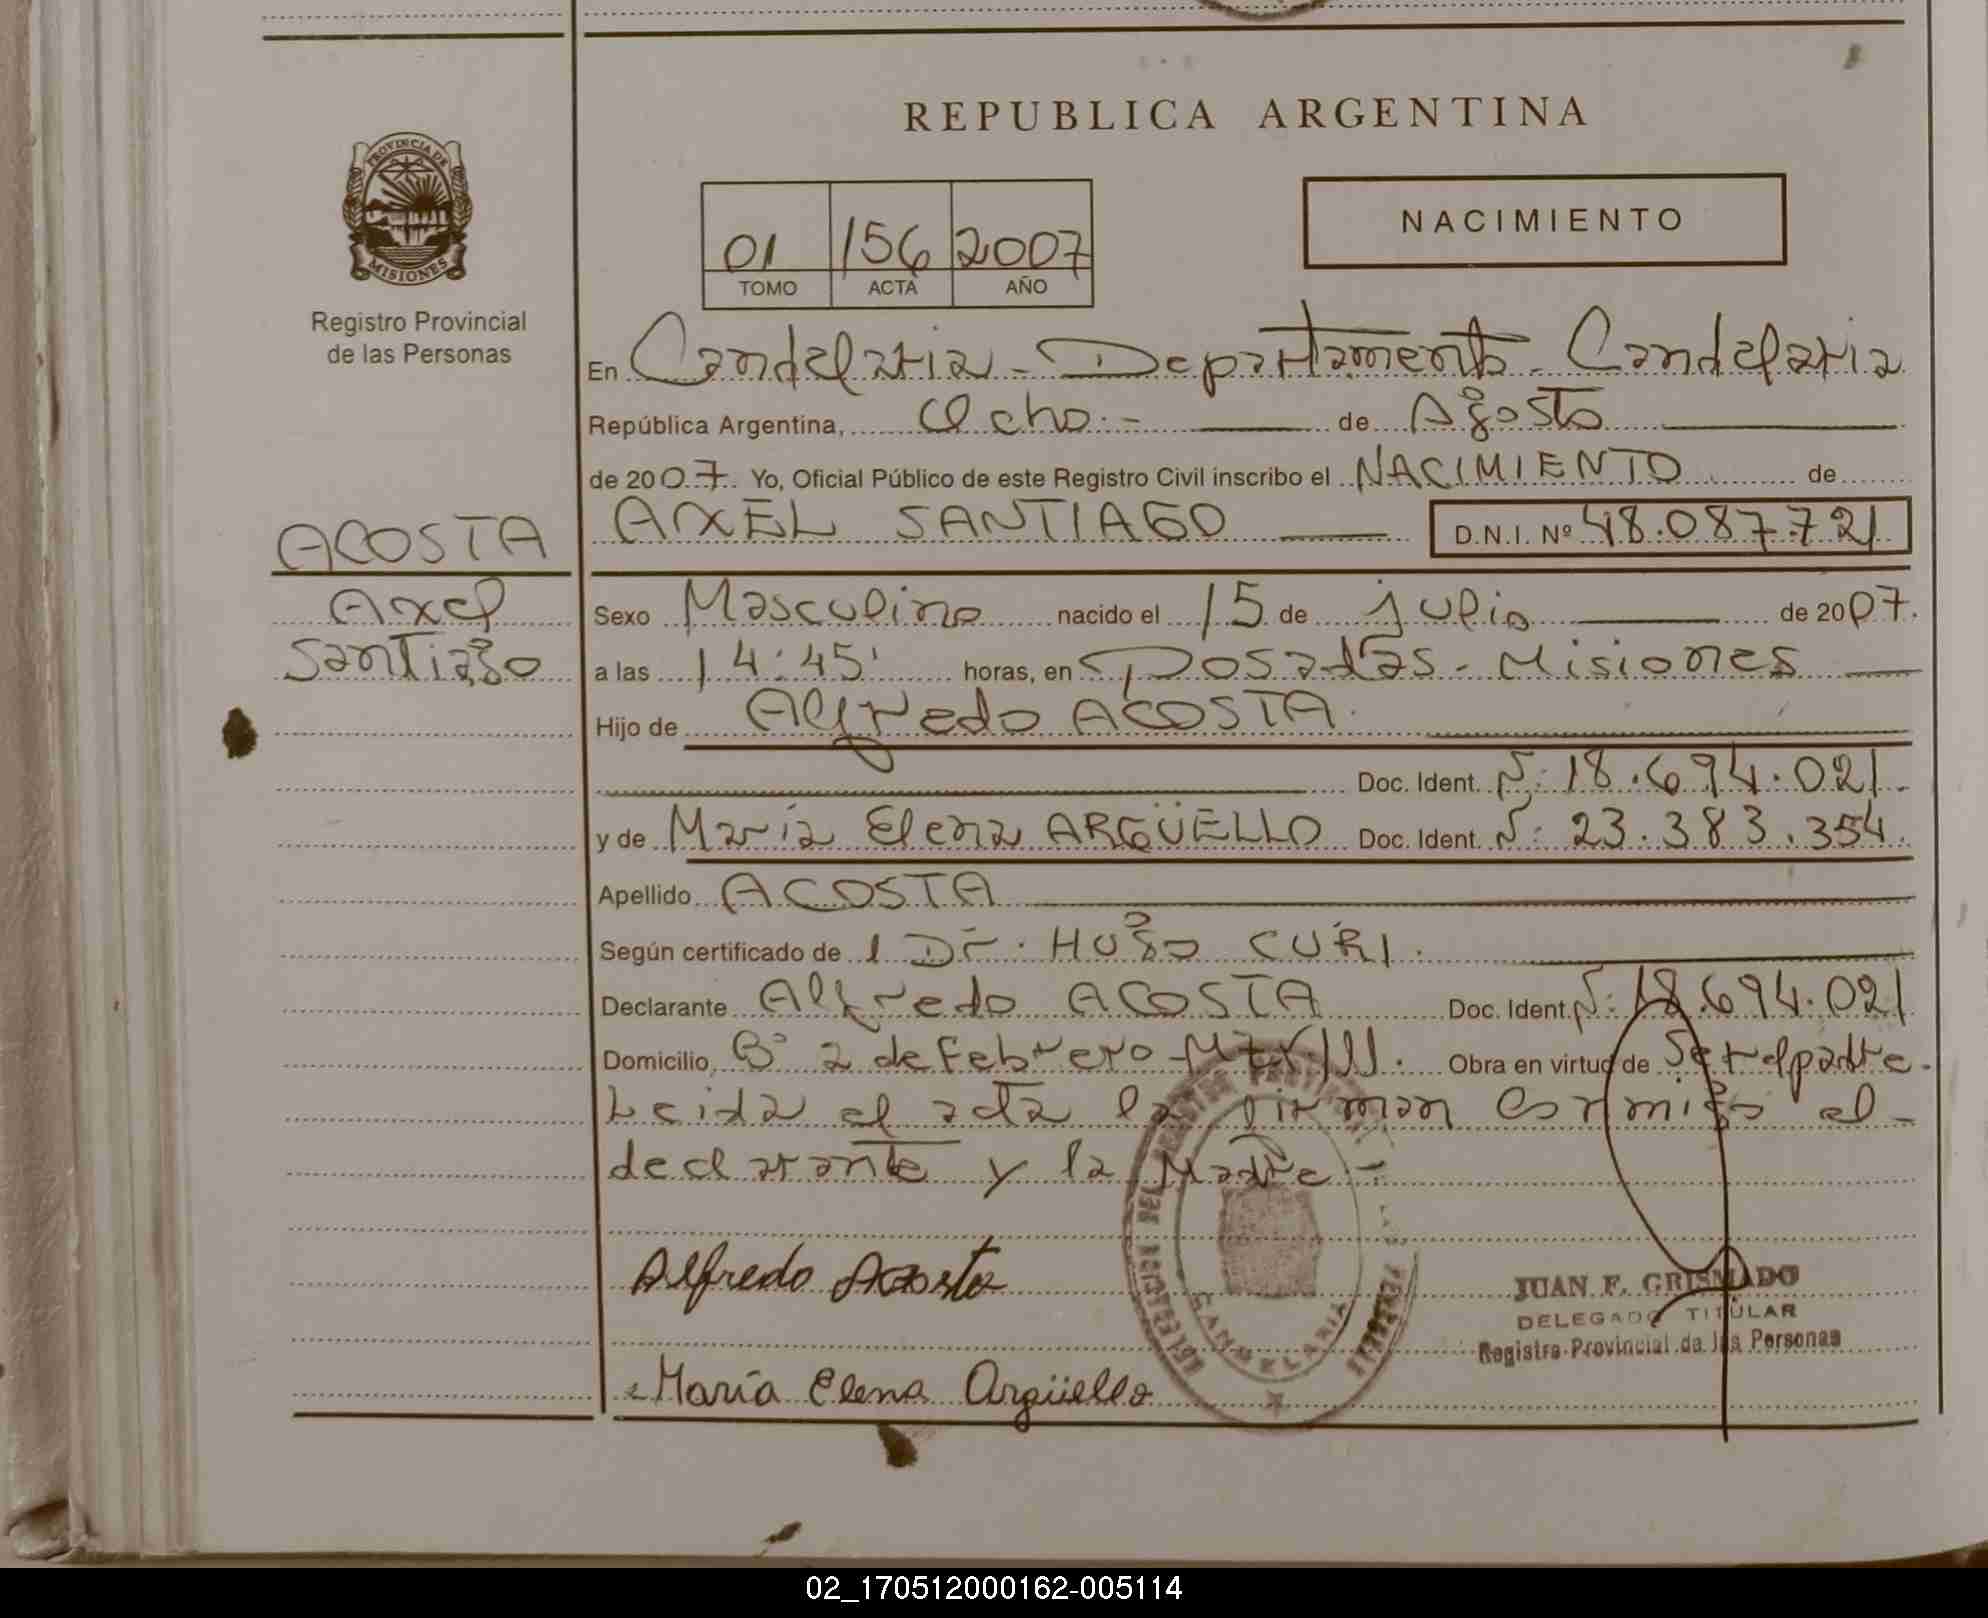 REPUBLICA ARGENTINA
PROVINCIA DE
MISIONES
Registro Provincial
de las Personas
01 156 2007
TOMO ACTA AÑO
NACIMIENTO
En Candelaria - Departamento - Candelaria
República Argentina, Ocho.- de Agosto
de 2007. Yo, Oficial Público de este Registro Civil inscribo el NACIMIENTO de
ACOSTA
Axel
Santiago
AXEL SANTIAGO D.N.I. Nº 48.087.721
Sexo Masculino nacido el 15 de julio de 2007.
a las 14:45' horas, en Posadas - Misiones
Hijo de Alfredo ACOSTA.
Doc. Ident. Nº: 18.694.021.
y de María Elena ARGÜELLO Doc. Ident. Nº: 23.383.354.
Apellido ACOSTA
Según certificado de l Dr. HUGO CURI.
Declarante Alfredo ACOSTA Doc. Ident. Nº: 18.694.021
Domicilio, Bº 2 de Febrero Obra en virtud de Ser el padre.
Leida el acta la firman conmigo el
declarante y la Madre
Alfredo Acosta
María Elena Argüello
CANDELARIA
JUAN F. GRISMADO
DELEGADO TITULAR
Registro Provincial de las Personas
02_170512000162-005114